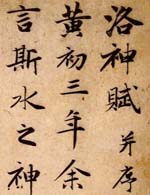 洛神賦 并序
黄初三年余
言斯水之神